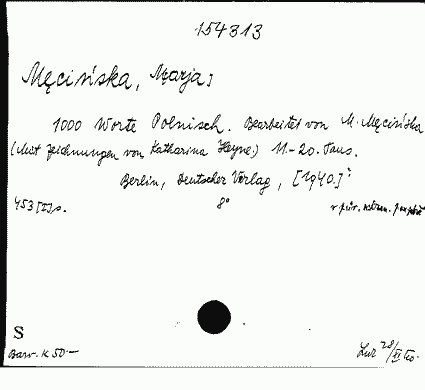 154313
Męcińska, Marja]
1000 Worte Polnisch. Bearbeitet von M. Męcińska
(Mit Zeichnungen von Katharina Heyne.) 11.-20. Taus.
Berlin, Deutscher Verlag, [1940.]
453 [I] s. 8° v pův. nakl.
S
Barv. K 50.-
28/XI